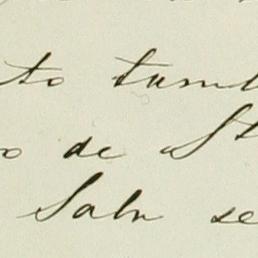 to tam
o de St
Salv se